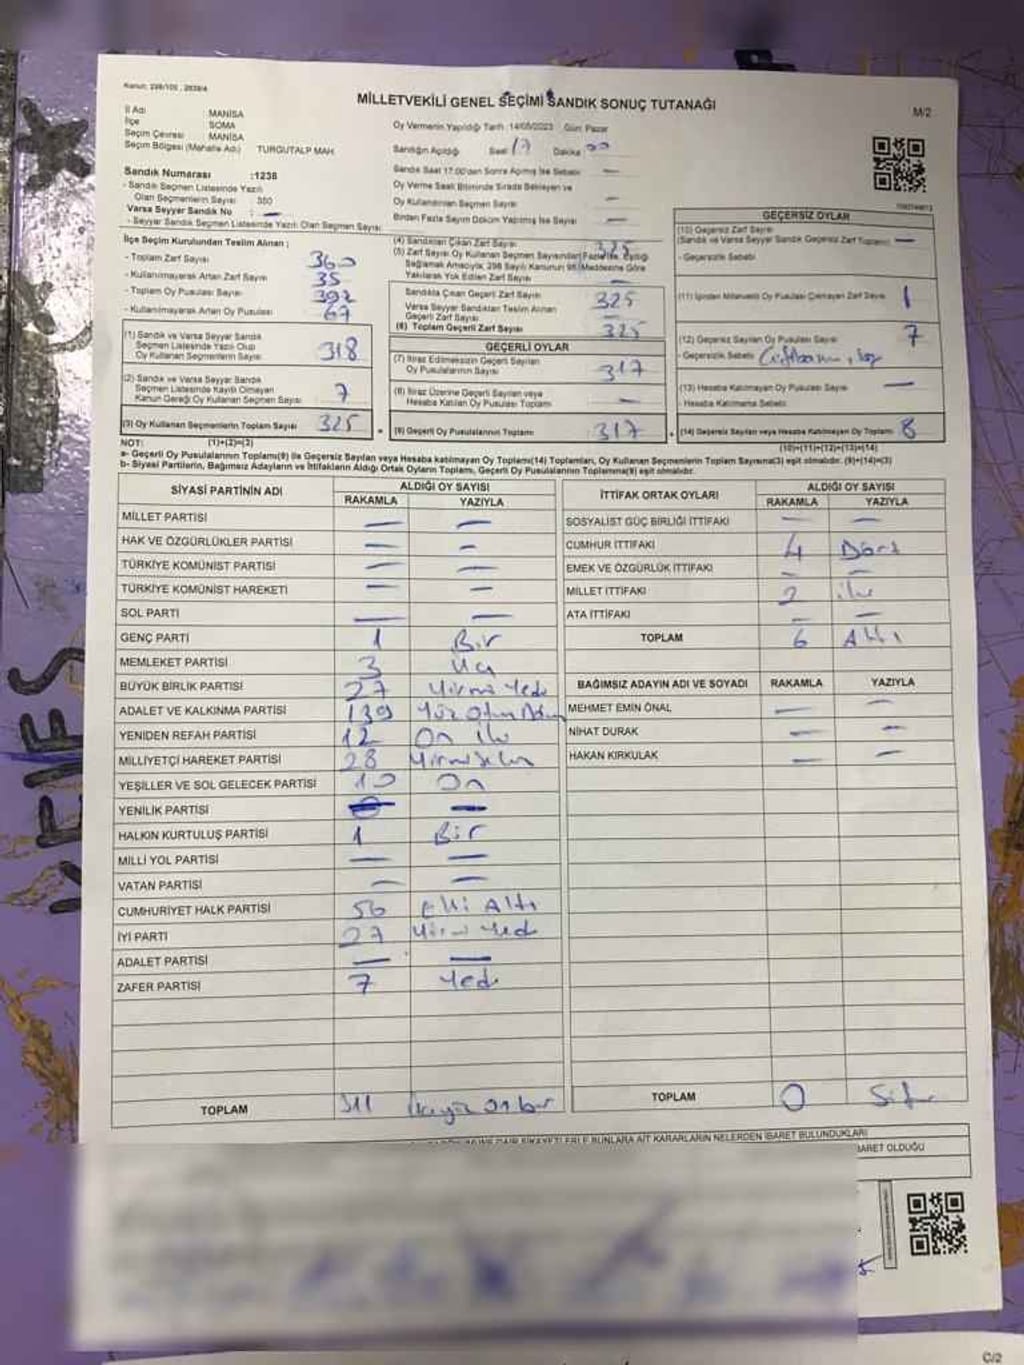 MİLLETVEKİLİ GENEL SEÇİMİ SANDIK SONUÇ TUTANAĞI
M/2
İl Adı : MANİSA
İlçe SOMA
Seçim Çevresi MANİSA
Seçim Bölgesi (Mahalle Adı) TURGUTALP MAH.
Oy Vermenin Yapıldığı Tarih :14/05/2023 Gün: Pazar
Sandığın Açıldığı Saat 17 Dakika 00
Sandık Saat 17.00'den Sonra Açılmış İse Sebebi —
Oy Verme Saati Bitiminde Sırada Bekleyen ve
Oy Kullandırılan Seçmen Sayısı —
Birden Fazla Sayım Döküm Yapılmış İse Sayısı —
Sandık Numarası :1238
- Sandık Seçmen Listesinde Yazılı
Olan Seçmenlerin Sayısı : 350
Varsa Seyyar Sandık No : —
- Seyyar Sandık Seçmen Listesinde Yazılı Olan Seçmen Sayısı:
İlçe Seçim Kurulundan Teslim Alınan ;
- Toplam Zarf Sayısı 360
- Kullanılmayarak Artan Zarf Sayısı 35
- Toplam Oy Pusulası Sayısı 392
- Kullanılmayarak Artan Oy Pusulası 67
(1) Sandık ve Varsa Seyyar Sandık
Seçmen Listesinde Yazılı Olup
Oy Kullanan Seçmenlerin Sayısı 318
(2) Sandık ve Varsa Seyyar Sandık
Seçmen Listesinde Kayıtlı Olmayan
Kanun Gereği Oy Kullanan Seçmen Sayısı 7
(3) Oy Kullanan Seçmenlerin Toplam Sayısı 325
(1)+(2)=(3)
(4) Sandıktan Çıkan Zarf Sayısı 325
(5) Zarf Sayısı Oy Kullanan Seçmen Sayısından Fazla İse, Eşitliği
Sağlamak Amacıyla, 298 Sayılı Kanunun 98. Maddesine Göre
Yakılarak Yok Edilen Zarf Sayısı —
Sandıkta Çıkan Geçerli Zarf Sayısı 325
Varsa Seyyar Sandıktan Teslim Alınan
Geçerli Zarf Sayısı —
(6) Toplam Geçerli Zarf Sayısı 325
GEÇERLİ OYLAR
(7) İtiraz Edilmeksizin Geçerli Sayılan
Oy Pusulalarının Sayısı 317
(8) İtiraz Üzerine Geçerli Sayılan veya
Hesaba Katılan Oy Pusulası Toplamı —
(9) Geçerli Oy Pusulalarının Toplamı 317
GEÇERSİZ OYLAR
(10) Geçersiz Zarf Sayısı
(Sandık ve Varsa Seyyar Sandık Geçersiz Zarf Toplamı) —
- Geçersizlik Sebebi
(11) İçinden Milletvekili Oy Pusulası Çıkmayan Zarf Sayısı 1
(12) Geçersiz Sayılan Oy Pusulası Sayısı 7
- Geçersizlik Sebebi
(13) Hesaba Katılmayan Oy Pusulası Sayısı —
- Hesaba Katılmama Sebebi
(14) Geçersiz Sayılan veya Hesaba Katılmayan Oy Toplamı 8
(10)+(11)+(12)+(13)=(14)
NOT:
a- Geçerli Oy Pusulalarının Toplamı(9) ile Geçersiz Sayılan veya Hesaba katılmayan Oy Toplamı(14) Toplamları, Oy Kullanan Seçmenlerin Toplam Sayısına(3) eşit olmalıdır. (9)+(14)=(3)
b- Siyasi Partilerin, Bağımsız Adayların ve İttifakların Aldığı Ortak Oyların Toplamı, Geçerli Oy Pusulalarının Toplamına(9) eşit olmalıdır.
SİYASİ PARTİNİN ADI ALDIĞI OY SAYISI
RAKAMLA YAZIYLA
MİLLET PARTİSİ — —
HAK VE ÖZGÜRLÜKLER PARTİSİ — —
TÜRKİYE KOMÜNİST PARTİSİ — —
TÜRKİYE KOMÜNİST HAREKETİ — —
SOL PARTİ — —
GENÇ PARTİ 1 Bir
MEMLEKET PARTİSİ 3 Üç
BÜYÜK BİRLİK PARTİSİ 27 Yirmi Yedi
ADALET VE KALKINMA PARTİSİ 139 Yüz Otuz Dokuz
YENİDEN REFAH PARTİSİ 12 On iki
MİLLİYETÇİ HAREKET PARTİSİ 28 Yirmi Sekiz
YEŞİLLER VE SOL GELECEK PARTİSİ 10 On
YENİLİK PARTİSİ — —
HALKIN KURTULUŞ PARTİSİ 1 Bir
MİLLİ YOL PARTİSİ — —
VATAN PARTİSİ — —
CUMHURİYET HALK PARTİSİ 56 Elli Altı
İYİ PARTİ 27 Yirmi Yedi
ADALET PARTİSİ — —
ZAFER PARTİSİ 7 Yedi
TOPLAM 311
İTTİFAK ORTAK OYLARI ALDIĞI OY SAYISI
RAKAMLA YAZIYLA
SOSYALİST GÜÇ BİRLİĞİ İTTİFAKI — —
CUMHUR İTTİFAKI 4 Dört
EMEK VE ÖZGÜRLÜK İTTİFAKI — —
MİLLET İTTİFAKI 2 iki
ATA İTTİFAKI — —
TOPLAM 6 Altı
BAĞIMSIZ ADAYIN ADI VE SOYADI RAKAMLA YAZIYLA
MEHMET EMİN ÖNAL — —
NİHAT DURAK — —
HAKAN KIRKULAK — —
TOPLAM 0 Sıfır
KARARLARIN NELERDEN İBARET BULUNDUKLARI
İBARET OLDUĞU
C/2